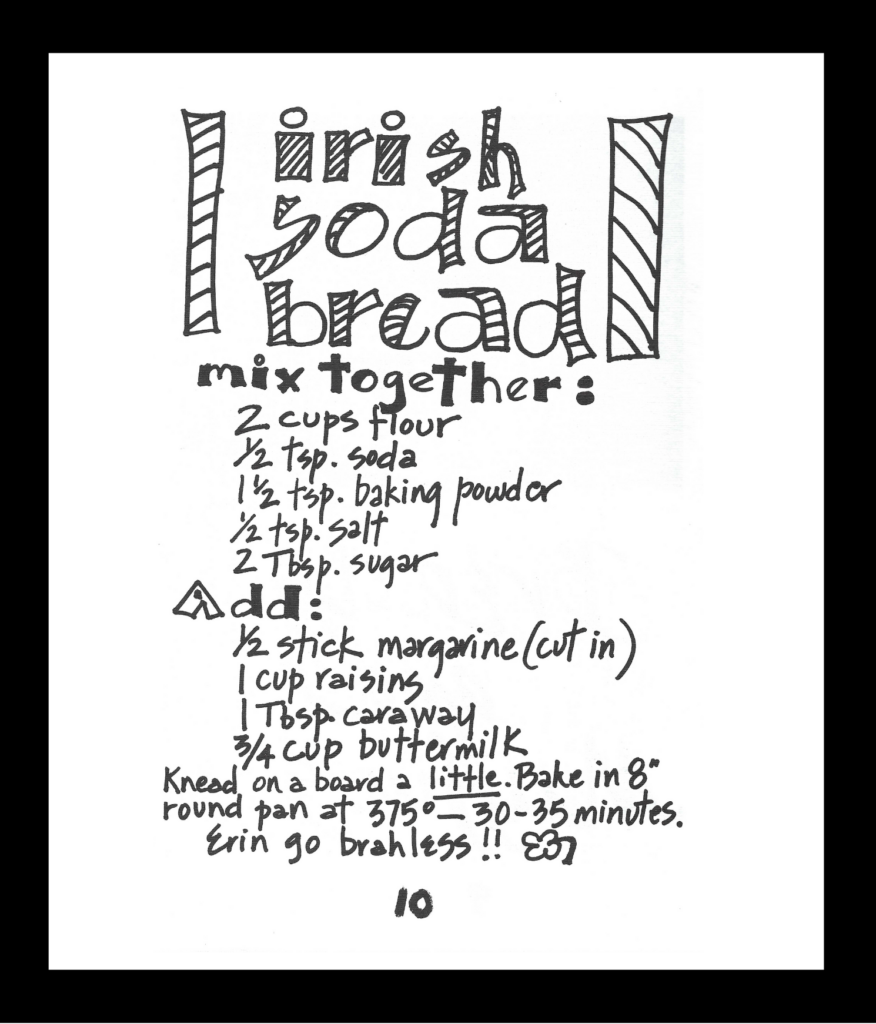 irish
soda
bread
mix together:
2 cups flour
1/2 tsp. soda
1 1/2 tsp. baking powder
1/2 tsp. salt
2 Tbsp. sugar
Add:
1/2 stick margarine (cut in)
1 cup raisins
1 Tbsp. caraway
3/4 cup buttermilk
Knead on a board a little. Bake in 8"
round pan at 375° — 30-35 minutes.
Erin go brahless !!
10